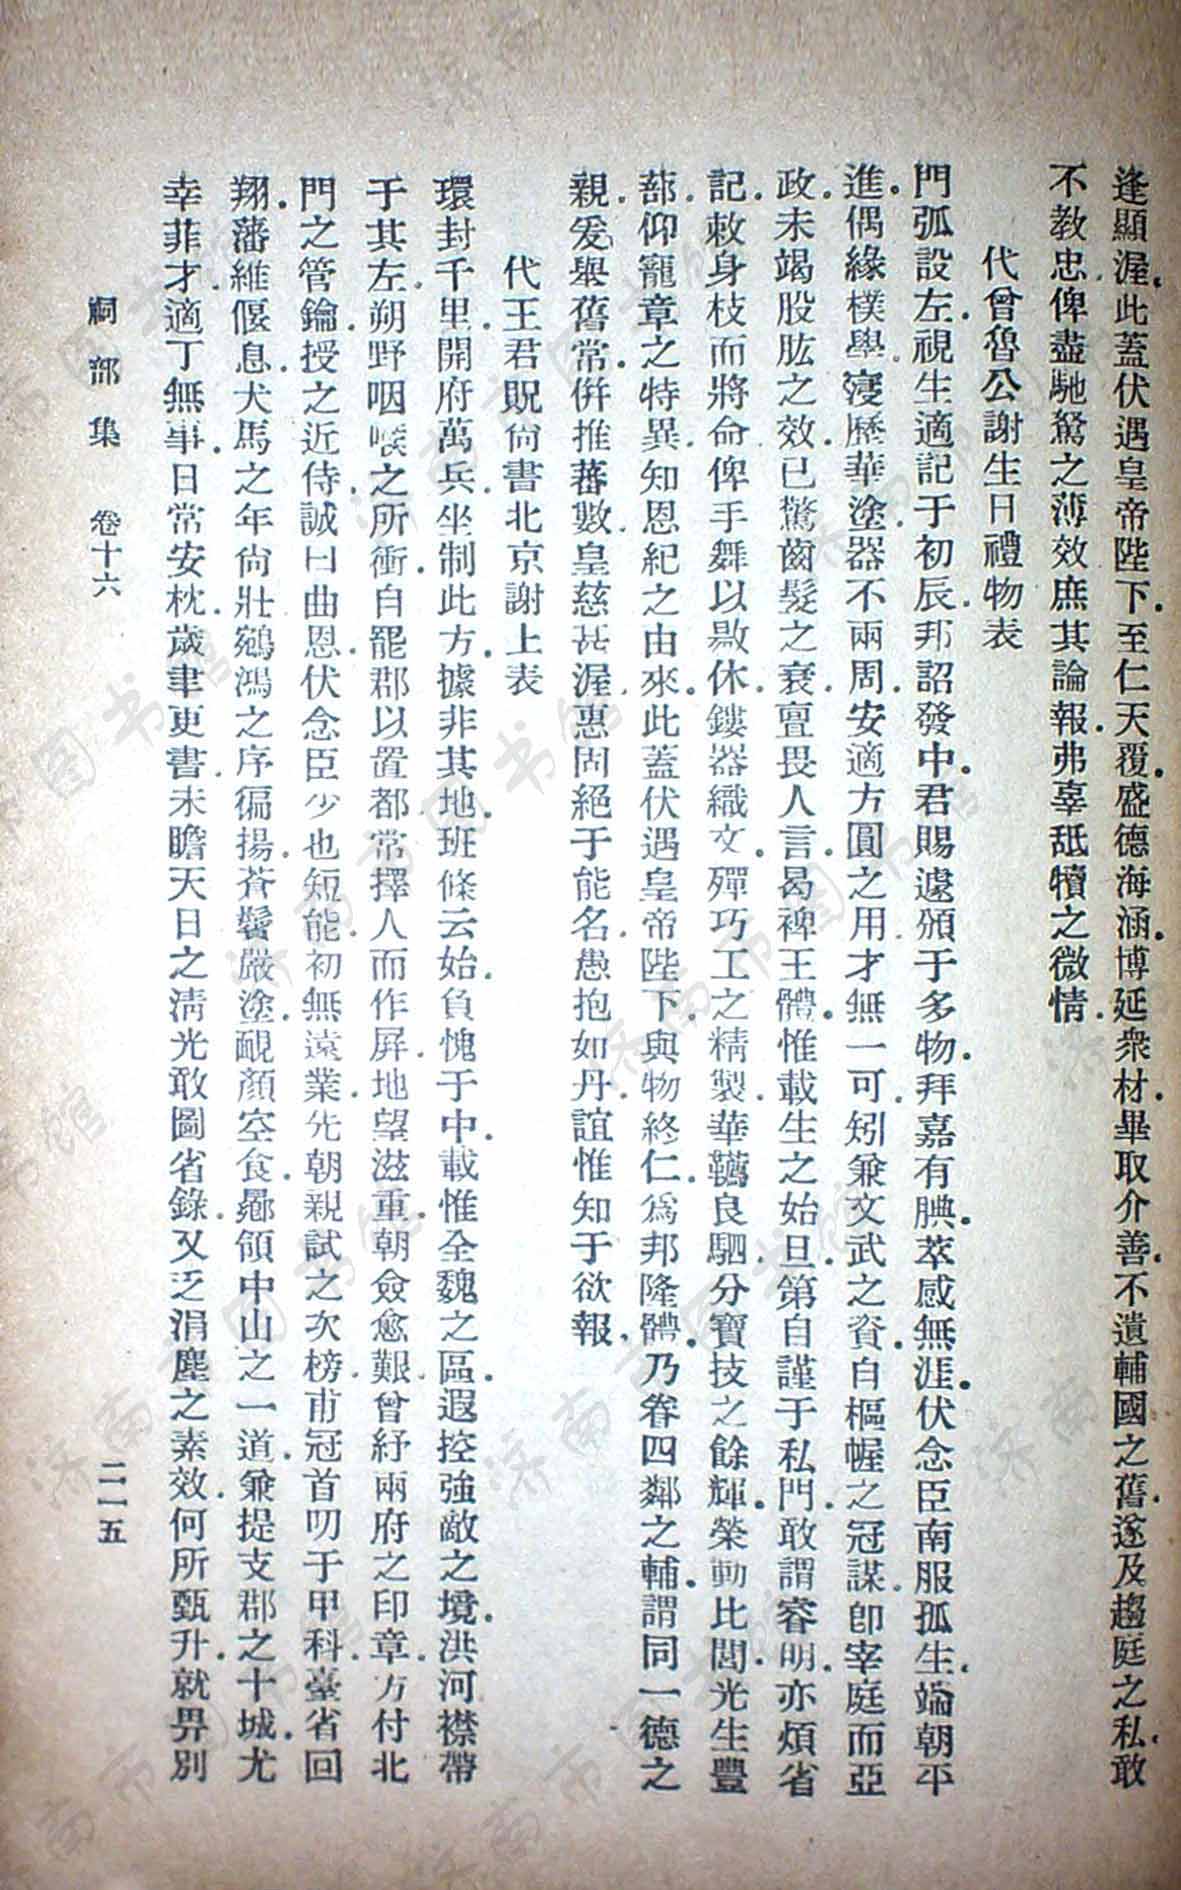 逢顯渥此蓋伏遇皇帝陛下至仁天覆盛德海涵博延衆材畢取介善不遺輔國之舊遂及趨庭之私敢
不教忠俾盡馳驁之薄效庶其論報弗辜舐犢之微情
代曾魯公謝生日禮物表
門弧設左視生適記于初辰邦詔發中君賜遽頒于多物拜嘉有腆萃感無涯伏念臣南服孤生端朝平
進偶緣樸學寖歷華塗器不兩周安適方圓之用才無一可矧兼文武之資自樞幄之冠謀卽宰庭而亞
政未竭股肱之效已驚齒髮之衰亶畏人言曷裨王體惟載生之始旦第自謹于私門敢謂睿明亦煩省
記敕身枝而將命俾手舞以歇休鏤器織文殫巧工之精製華韉良駟分寶技之餘輝榮動比閭光生豐
蔀仰寵章之特異知恩紀之由來此蓋伏遇皇帝陛下與物終仁爲邦隆體乃眷四鄰之輔謂同一德之
親爰舉舊常併推蕃數皇慈甚渥惠固絕于能名愚抱如丹誼惟知于欲報
代王君貺尙書北京謝上表
環封千里開府萬兵坐制此方據非其地班條云始負愧于中載惟全魏之區遐控強敵之境洪河襟帶
于其左朔野咽喉之所衝自罷郡以置都常擇人而作屏地望滋重朝僉愈艱曾紓兩府之印章方付北
門之管鑰授之近侍誠曰曲恩伏念臣少也短能初無遠業先朝親試之次榜甫冠首叨于甲科臺省回
翔藩維偃息犬馬之年尙壯鵷鴻之序徧揚蒼鬢嚴塗靦顏空食曏領中山之一道兼提支郡之十城尤
幸菲才適丁無事日常安枕歲聿更書未瞻天日之淸光敢圖省錄又乏涓塵之素效何所甄升就畀別
祠部集 卷十六
二一五
济南市图书馆